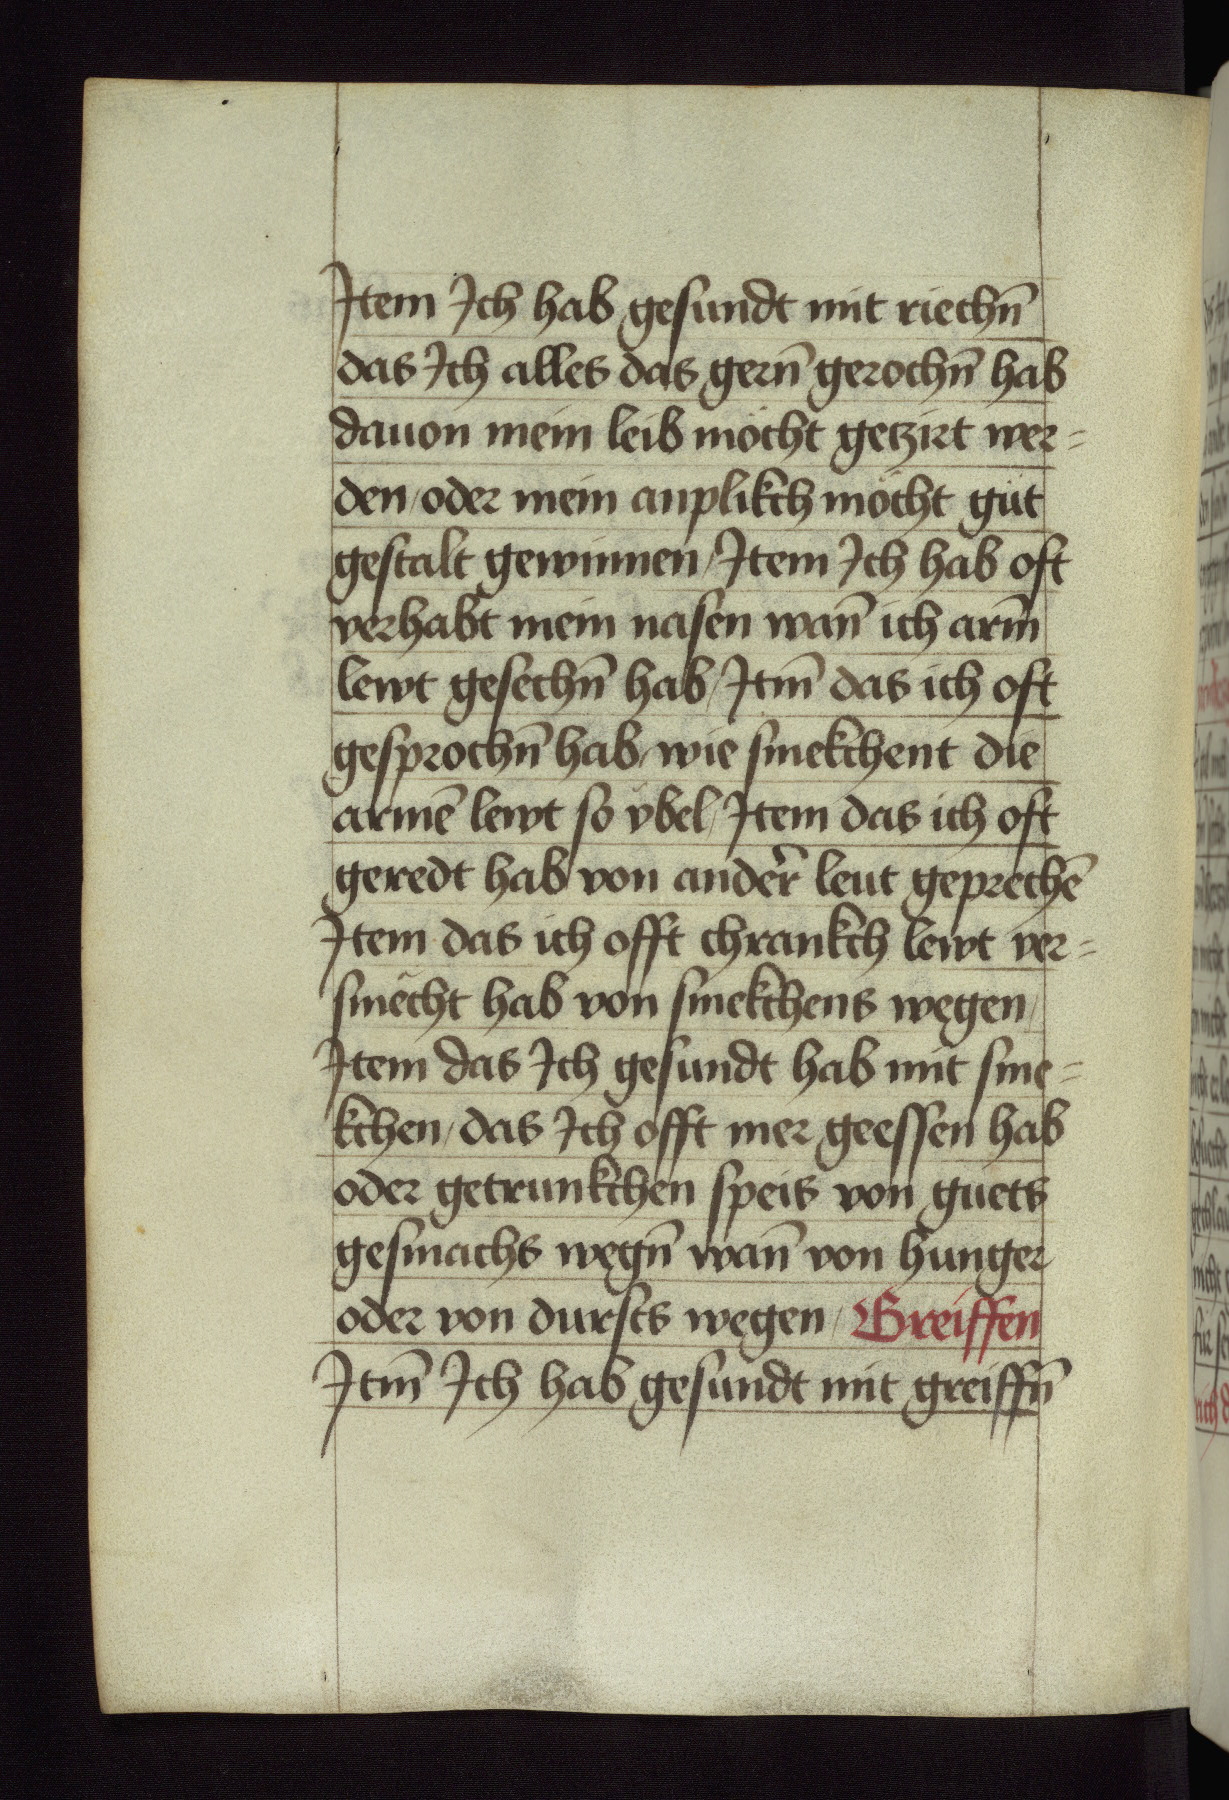 Item Ich hab gesundt mit riechn̄
das Ich alles das gern̄ gerochn̄ hab
dauon mein leib möcht getzirt wer=
den / oder mein anplikch möcht güt
gestalt gewinnen / Item Ich hab oft
verhabt mein nasen wan̄ ich arm̄
lewt gesechn̄ hab / Itm̄ das ich oft
gesprochn̄ hab / wie smekchent die
armē lewt so ÿbel / Item das ich oft
geredt hab von ander̄ leut geprechē
Item das ich offt chrankch lewt ver=
smëcht hab von smekchens wegen /
Item das Ich gesundt hab mit sme=
kchen / das Ich offt mer geessen hab
oder getrunkchen speis von guets
gesmachs wegn̄ wan̄ von hunger
oder von dursts wegen / Greiffen
Itm̄ Ich hab gesundt mit greiffn̄